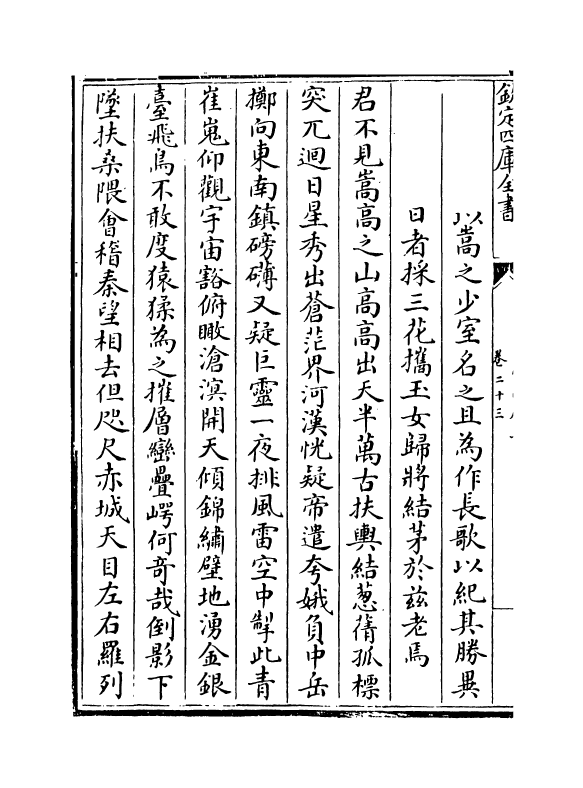 欽定四庫全書
卷二十三
以嵩之少室名之且為作長歌以紀其勝異
日者採三花攜玉女歸將結茅於兹老焉
君不見嵩高之山高高出天半萬古扶輿結蔥蒨孤標
突兀迴日星秀出蒼茫界河漢恍疑帝遣夸娥負中岳
擲向東南鎮磅礴又疑巨靈一夜排風雷空中掣此青
崔嵬仰觀宇宙豁俯瞰滄溟開天傾錦繡壁地湧金銀
臺飛鳥不敢度猿猱為之摧層巒疊崿何奇哉倒影下
墜扶桑隈會稽秦望相去但咫尺赤城天目左右羅列